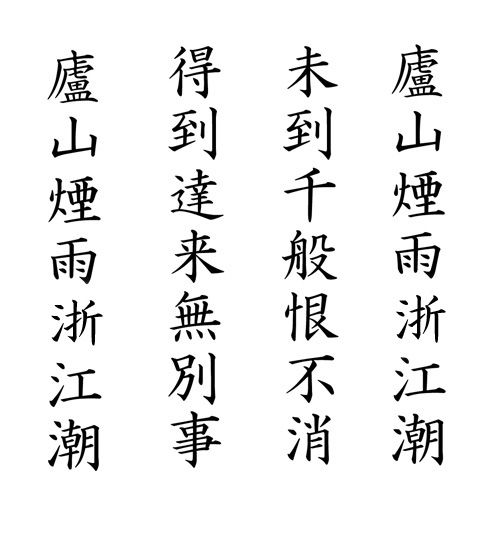 廬山煙雨浙江潮
未到千般恨不消
得到達来無別事
廬山煙雨浙江潮